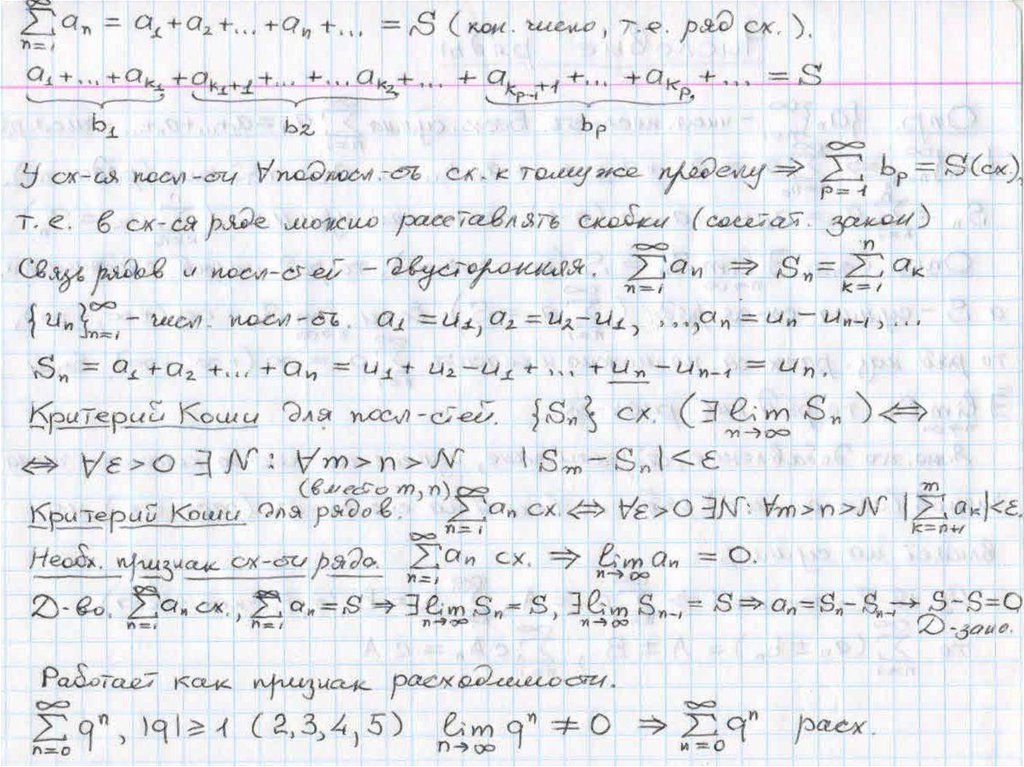 ∑_{n=1}^{∞} aₙ = a₁ + a₂ + ... + aₙ + ... = S (кон. число, т.е. ряд сх.).
a₁ + ... + a_{k₁} + a_{k₁+1} + ... + ... a_{k₂} + ... + a_{k_{p-1}+1} + ... + a_{k_p} + ... = S
b₁ b₂ b_p
У сх-ся посл-сти ∀ подпосл-сть сх. к тому же пределу ⇒ ∑_{p=1}^{∞} b_p = S (сх),
т.е. в сх-ся ряде можно расставлять скобки (сочетат. закон)
Связь рядов и посл-стей – двусторонняя. ∑_{n=1}^{∞} aₙ ⇒ Sₙ = ∑_{k=1}^{n} a_k
{uₙ}_{n=1}^{∞} – числ. посл-сть. a₁ = u₁, a₂ = u₂ - u₁, ..., aₙ = uₙ - u_{n-1}, ...
Sₙ = a₁ + a₂ + ... + aₙ = u₁ + u₂ - u₁ + ... + uₙ - u_{n-1} = uₙ.
Критерий Коши для посл-стей. {Sₙ} сх. (∃ lim_{n→∞} Sₙ) ⇔
⇔ ∀ε > 0 ∃ N : ∀m > n > N |Sₘ - Sₙ| < ε
(вместо m, n)
Критерий Коши для рядов. ∑_{n=1}^{∞} aₙ сх ⇔ ∀ε > 0 ∃N : ∀m > n > N |∑_{k=n+1}^{m} a_k| < ε.
Необх. признак сх-сти ряда. ∑_{n=1}^{∞} aₙ сх. ⇒ lim_{n→∞} aₙ = 0.
Д-во. ∑_{n=1}^{∞} aₙ сх., ∑_{n=1}^{∞} aₙ = S ⇒ ∃ lim_{n→∞} Sₙ = S, ∃ lim_{n→∞} S_{n-1} = S ⇒ aₙ = Sₙ - S_{n-1} → S - S = 0
Д-зано.
Работает как признак расходимости.
∑_{n=0}^{∞} qⁿ, |q| ≥ 1 (2,3,4,5) lim_{n→∞} qⁿ ≠ 0 ⇒ ∑_{n=0}^{∞} qⁿ расх.